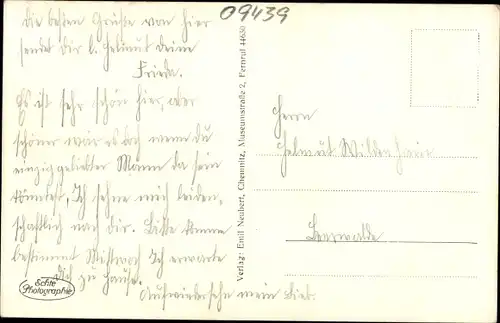 09439
Die besten Grüße von hier
sendet dir l. Helmut deine
Frieda.
Es ist sehr schön hier, aber
schöner wär es doch wenn du
einzig geliebter Mann da sein
könntest. Ich sehne mich leiden-
schaftlich nach dir. Bitte komme
bestimmt Mittwoch Ich erwarte
dich zu Hause.
Aufwiedersehn mein Lieb.
Echte
Photographie
Verlag: Emil Neubert, Chemnitz, Museumstraße 2, Fernruf 44650
Herrn
Helmut Wildenhain